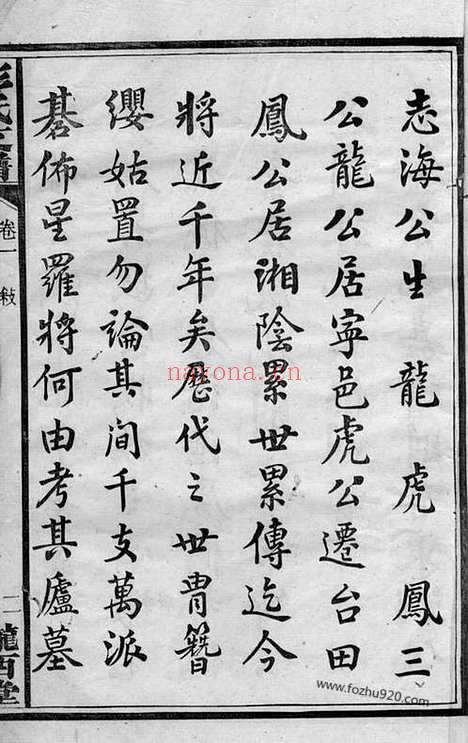 志海公生龍虎鳳三
公龍公居寧邑虎公遷台田
鳳公居湘陰累世累傳迄今
將近千年矣歷代之世冑簪
纓姑置勿論其間千支萬派
碁佈星羅將何由考其廬墓
卷一 敍
二
隴西堂
nayona.cn
www.fozhu920.com